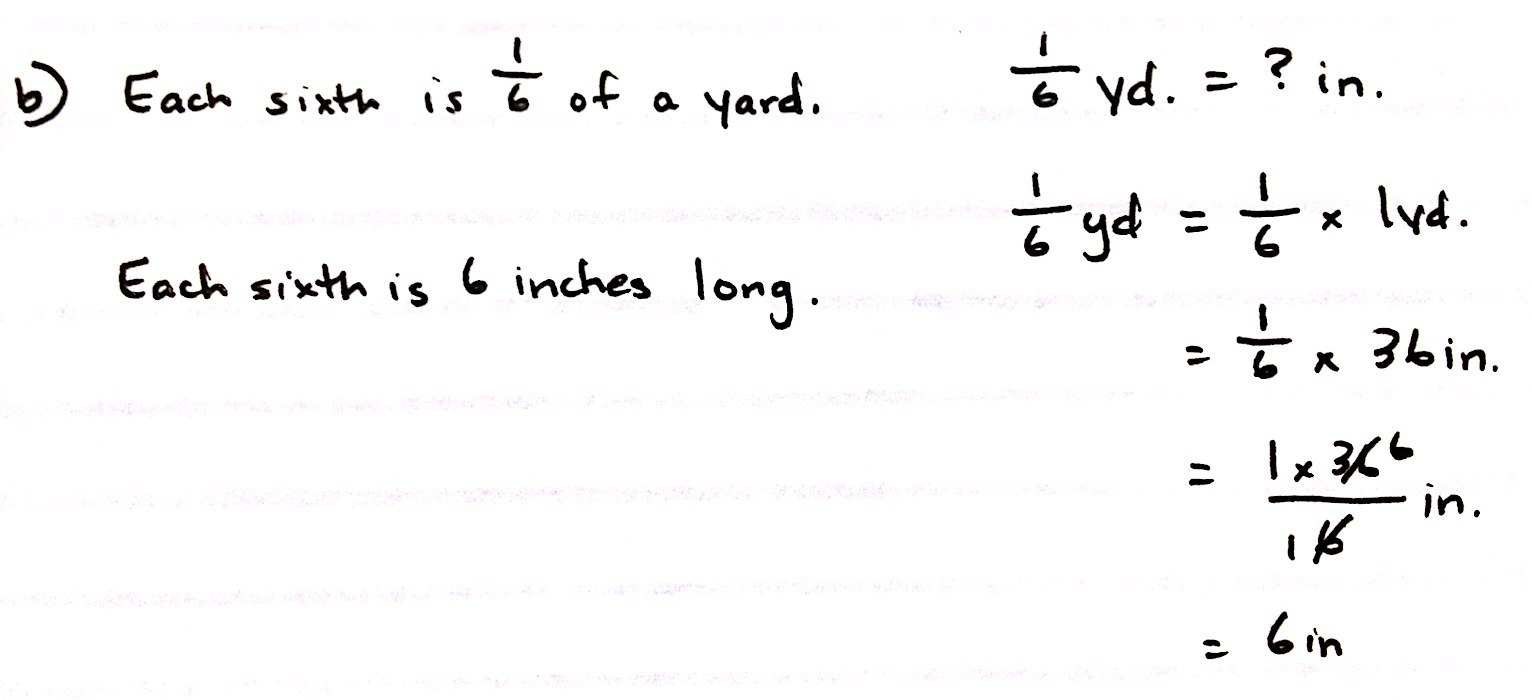 b) Each sixth is 1/6 of a yard.
Each sixth is 6 inches long.
1/6 yd. = ? in.
1/6 yd = 1/6 x 1yd.
= 1/6 x 36in.
= 1 x 36 6 / 1 6 in.
= 6in